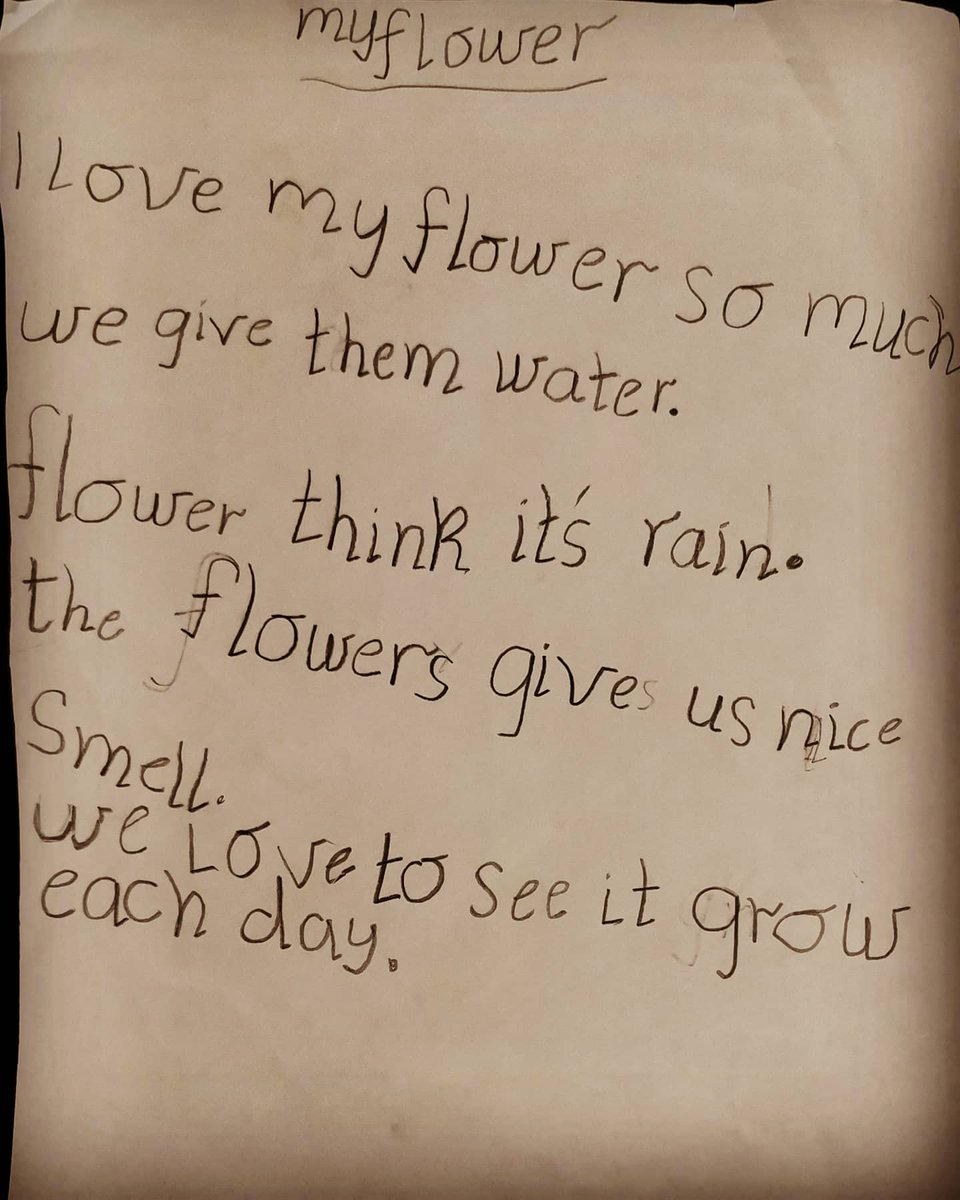 my flower
I Love my flower so much
we give them water.
flower think it's rain.
the flowers gives us nice
Smell.
we Love to see it grow
each day.